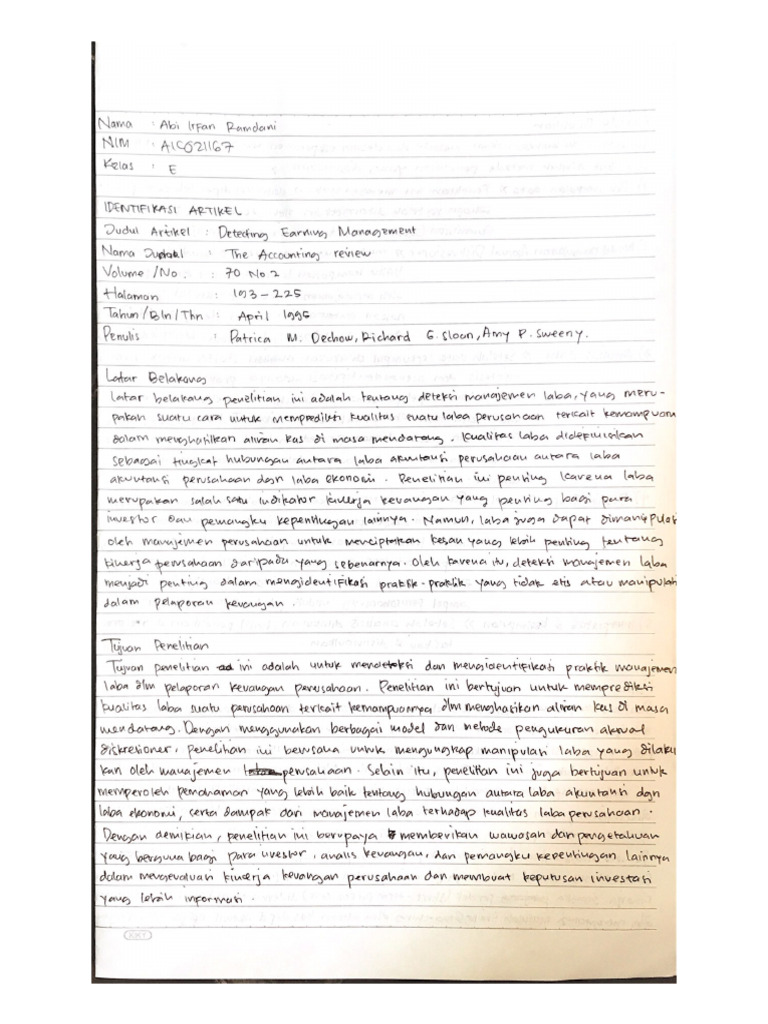 Nama : Abi Irfan Ramdani
NIM : A1C021167
Kelas : E
IDENTIFIKASI ARTIKEL
Judul Artikel : Detecting Earning Management
Nama Jurnal : The Accounting review
Volume/No. : 70 No 2
Halaman : 193-225
Tahun/Bln/Thn : April 1995
Penulis : Patrica M. Dechow, Richard G. Sloan, Amy P. Sweeny.
Latar Belakang
latar belakang penelitian ini adalah tentang deteksi manajemen laba, yang meru-
pakan suatu cara untuk memprediksi kualitas suatu laba perusahaan terkait kemampuan
dalam menghasilkan aliran kas di masa mendatang. Kualitas laba didefinisikan
sebagai tingkat hubungan antara laba akuntansi perusahaan antara laba
akuntansi perusahaan dgn laba ekonomi. Penelitian ini penting karena laba
merupakan salah satu indikator kinerja keuangan yang penting bagi para
investor dan pemangku kepentingan lainnya. Namun, laba juga dapat dimanipulasi
oleh manajemen perusahaan untuk menciptakan kesan yang lebih penting tentang
kinerja perusahaan daripada yang sebenarnya. Oleh karena itu, deteksi manajemen laba
menjadi penting dalam mengidentifikasi praktik-praktik yang tidak etis atau manipulati
dalam pelaporan keuangan.
Tujuan Penelitian
Tujuan penelitian ini adalah untuk mendeteksi dan mengidentifikasi praktik manajemen
laba dlm pelaporan keuangan perusahaan. Penelitian ini bertujuan untuk memprediksi
kualitas laba suatu perusahaan terkait kemampuannya dlm menghasilkan aliran kas di masa
mendatang. Dengan menggunakan berbagai model dan metode pengukuran akrual
diskresioner, penelitian ini berusaha untuk mengungkap manipulasi laba yang dilaku
kan oleh manajemen perusahaan. Selain itu, penelitian ini juga bertujuan untuk
memperoleh pemahaman yang lebih baik tentang hubungan antara laba akuntansi dgn
laba ekonomi, serta dampak dari manajemen laba terhadap kualitas laba perusahaan.
Dengan demikian, penelitian ini berupaya memberikan wawasan dan pengetahuan
yang berguna bagi para investor, analis keuangan, dan pemangku kepentingan lainnya
dalam mengevaluasi kinerja keuangan perusahaan dan membuat keputusan investasi
yang lebih informasi.